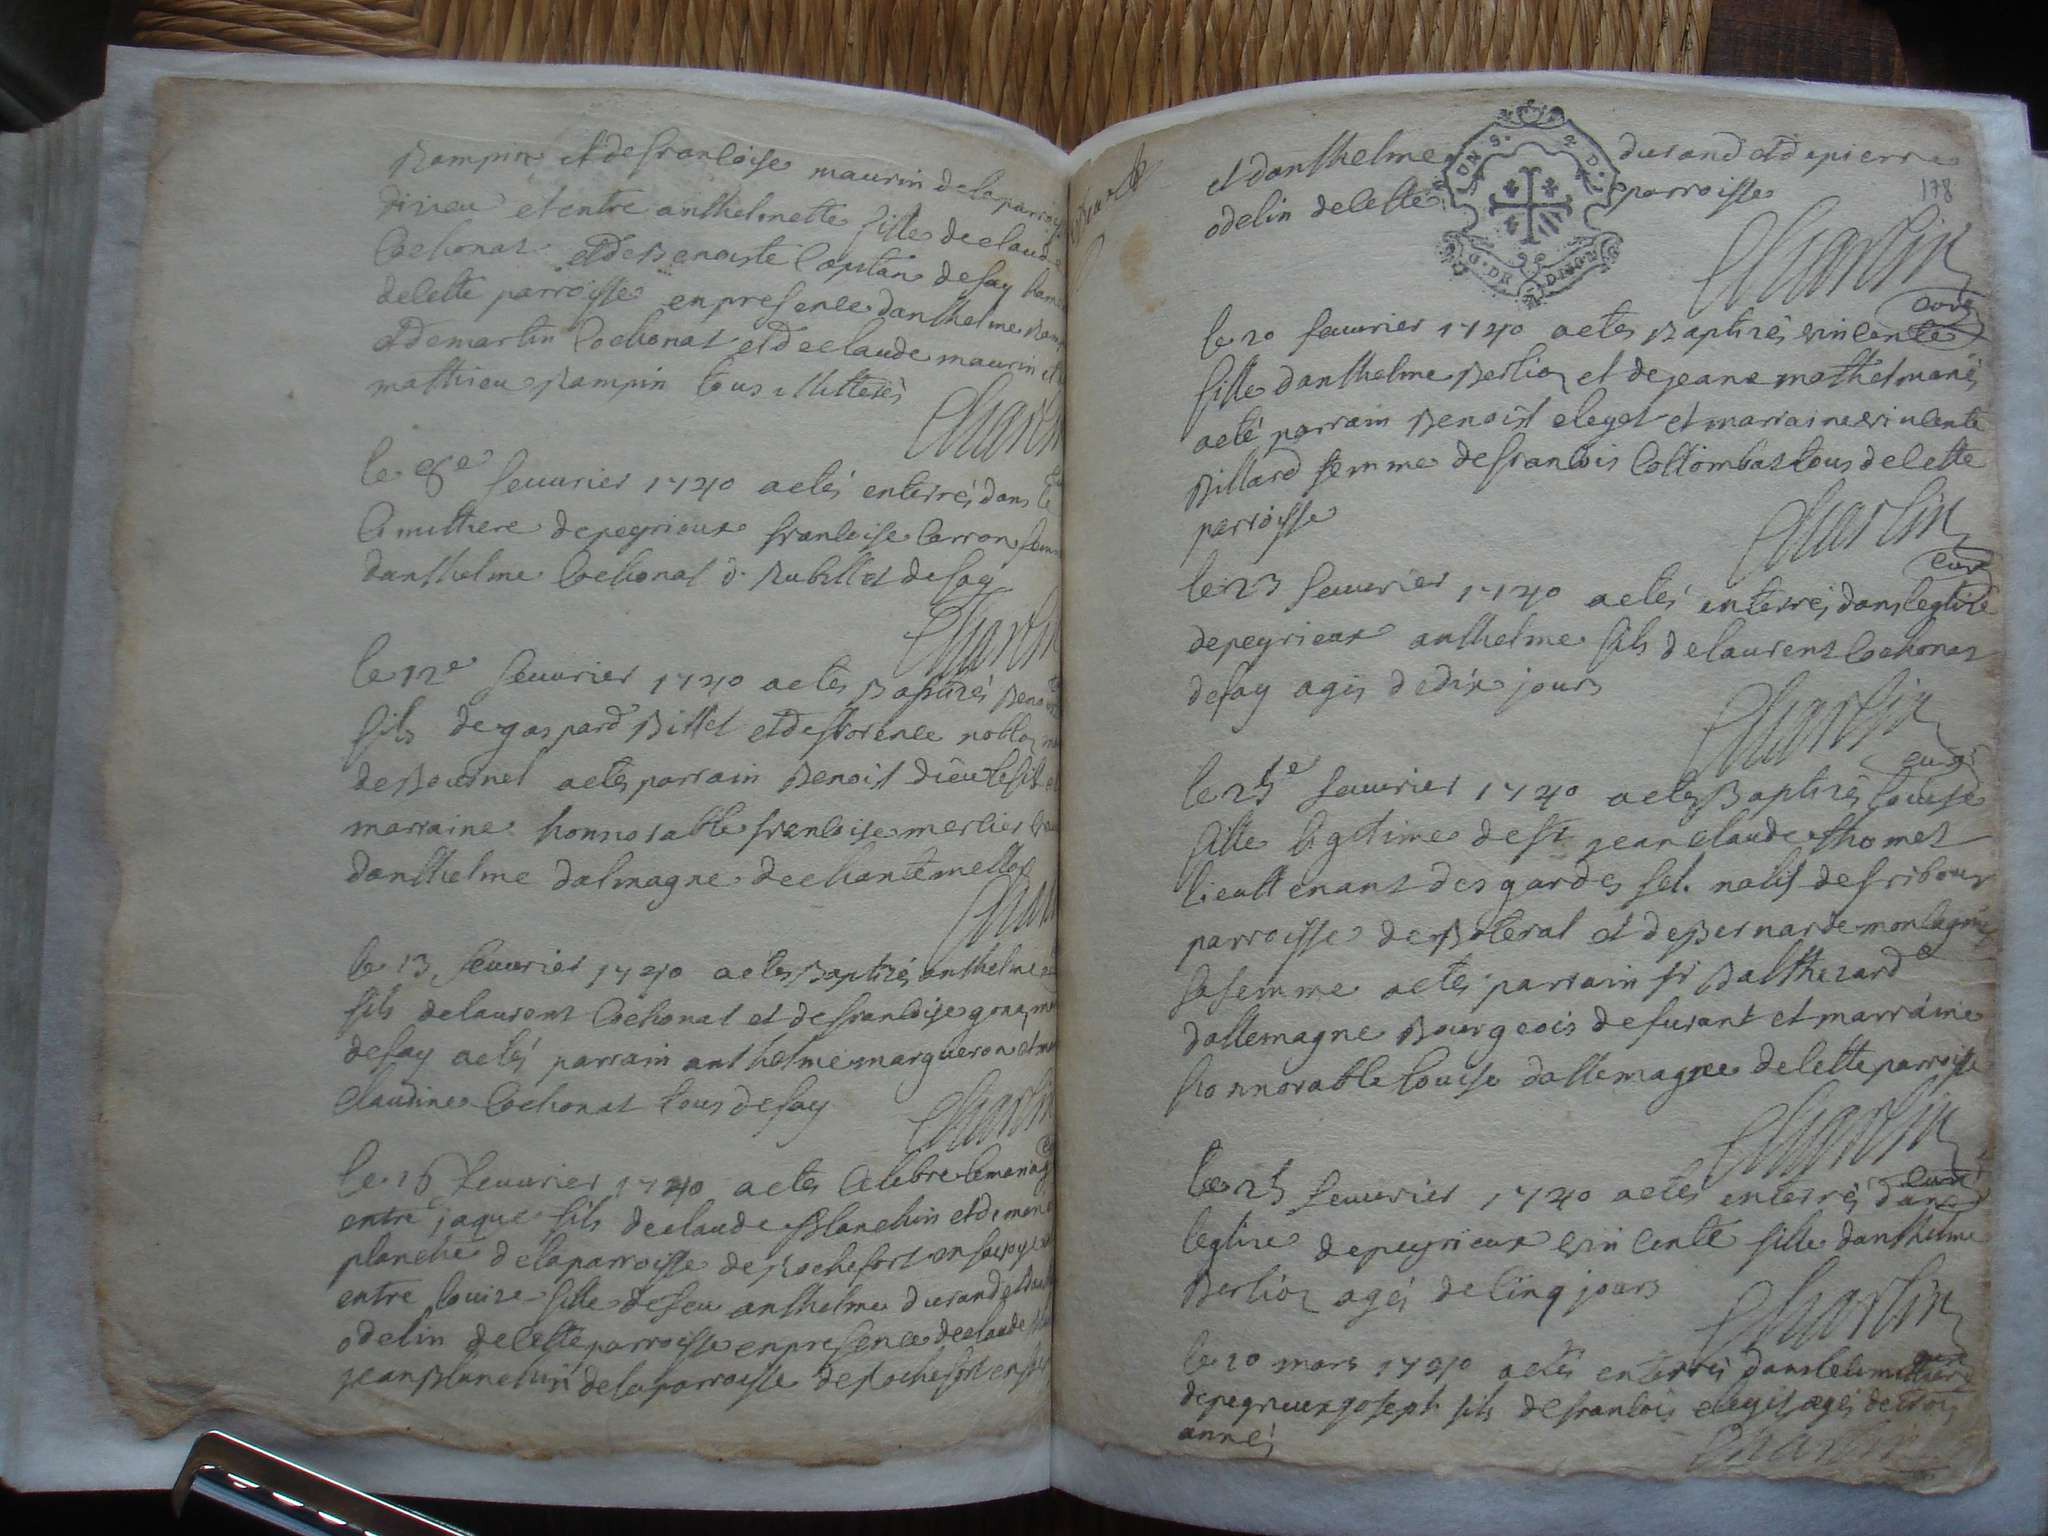 Rampin et de francoise maurin de la parroisse
et entre anthelmette fille de claude
Cochonat et de Benoiste Capitan de fay
de cette parroisse en presence danthelme
et de martin Cochonat et de claude maurin et
mathieu Rampin tous illitterés
Charlin
le 8e feuurier 1740 a eté enterré dans le
Cimithere de peyrieux francoise Carron femme
danthelme Cochonat d. Rubillet de fay
Charlin
le 12e feuurier 1740 a eté Baptizé Benoit
fils de gaspard Billet et de florence
de Bournet a eté parrain Benoit Dieu le fit et
marraine honnorable francoise mercier
danthelme dalmagne de chantemelle
Charlin
le 13 feuurier 1740 a eté Baptizé anthelme
fils de laurent Cochonat et de francoise
de fay a eté parrain anthelme margueron et
claudine Cochonat tous de fay
Charlin
le 16 feuurier 1740 a eté Celebré le mariage
entre jaque fils de claude Blanchin et de
planche de la parroisse de Rochefort en sauoye
entre louise fille de feu anthelme durand et
odelin de cette parroisse en presence de claude
jean Blanchin de la parroisse de Rochefort en
et danthelme durand et de pierre
odelin de cette parroisse
178
G. DE DIJON
Charlin
curé
le 20 feuurier 1740 a eté Baptizé vincente
fille danthelme Berlioz et de jeane mathelmariés
a eté parrain Benoist cleget et marraine vincente
Billard femme de francois Collombat tous de cette
parroisse
Charlin
curé
le 23 feuurier 1740 a eté enterré dans leglise
de peyrieux anthelme fils de laurent Cochonat
de fay agé de dix jours
Charlin
curé
le 25e feuurier 1740 a eté Baptizé louise
fille legitime de sr jean claude thomet
lieuttenant des gardes sel. natif de fribourg
parroisse de et de Bernarde montagnie
sa femme a eté parrain sr Balthezard
dallemagne Bourgeois de furant et marraine
honnorable louise dallemagne de cette parroisse
Charlin
curé
le 25 feuurier 1740 a eté enterré dans
leglise de peyrieux vincente fille danthelme
Berlioz agé de cinq jours
Charlin
curé
le 20 mars 1740 a eté enterré dans le cimithiere
de peyrieux joseph fils de francois cleget agé de trois
année
Charlin